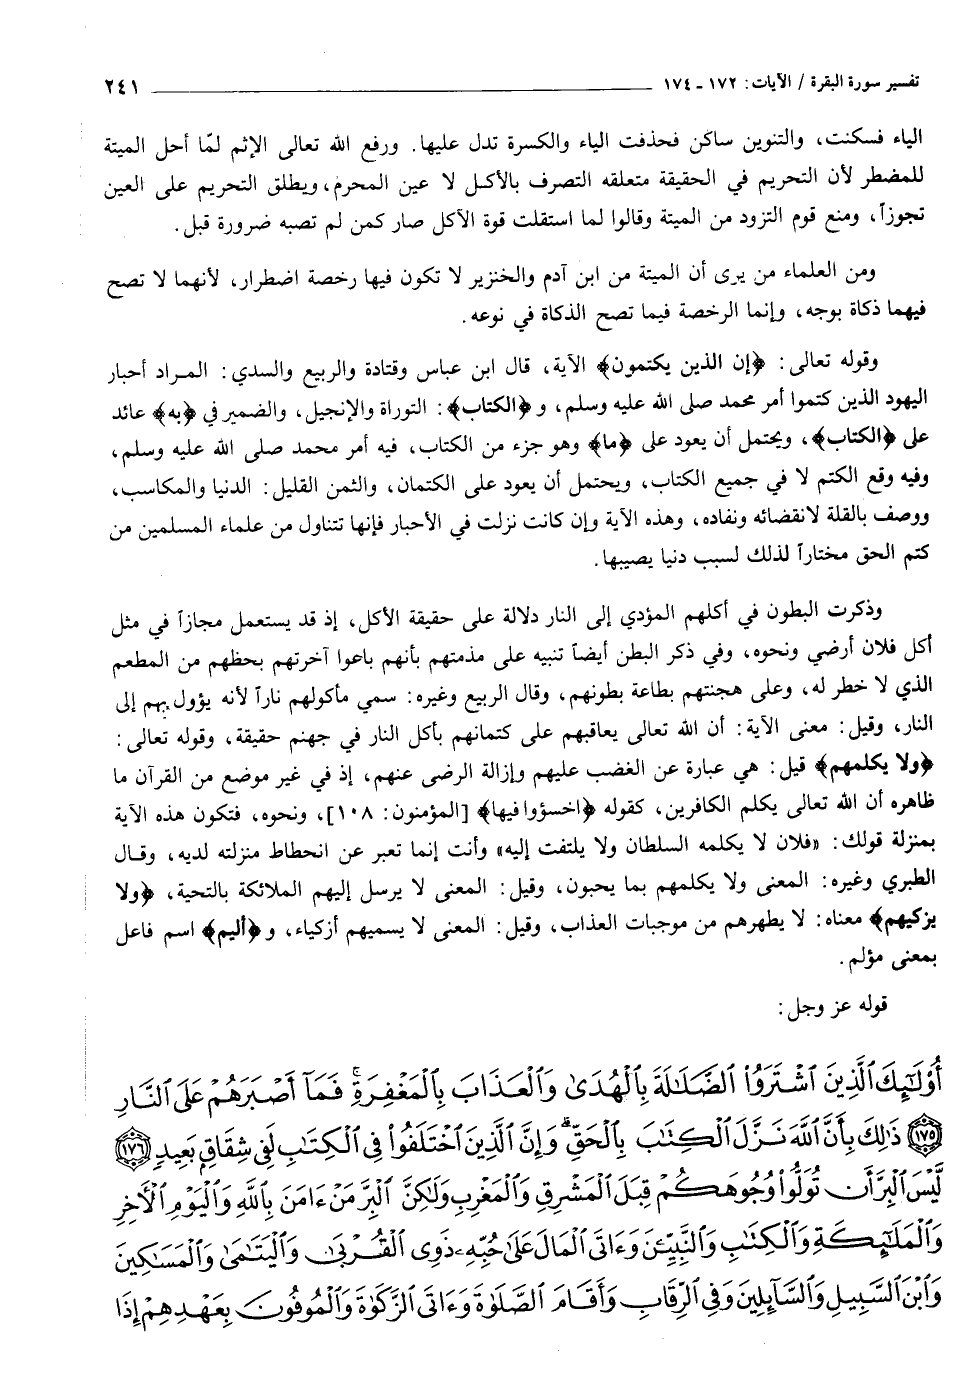 تفسير سورة البقرة / الآيات: ١٧٢ ـ ١٧٤ ٢٤١
الياء فسكنت، والتنوين ساكن فحذفت الياء والكسرة تدل عليها. ورفع الله تعالى الإثم لمّا أحل الميتة
للمضطر لأن التحريم في الحقيقة متعلقه التصرف بالأكل لا عين المحرم، ويطلق التحريم على العين
تجوزاً، ومنع قوم التزود من الميتة وقالوا لما استقلت قوة الآكل صار كمن لم تصبه ضرورة قبل.
ومن العلماء من يرى أن الميتة من ابن آدم والخنزير لا تكون فيها رخصة اضطرار، لأنهما لا تصح
فيهما ذكاة بوجه، وإنما الرخصة فيما تصح الذكاة في نوعه.
وقوله تعالى: ﴿إن الذين يكتمون﴾ الآية، قال ابن عباس وقتادة والربيع والسدي: المراد أحبار
اليهود الذين كتموا أمر محمد صلى الله عليه وسلم، و﴿الكتاب﴾: التوراة والإنجيل، والضمير في ﴿به﴾ عائد
على ﴿الكتاب﴾، ويحتمل أن يعود على ﴿ما﴾ وهو جزء من الكتاب، فيه أمر محمد صلى الله عليه وسلم،
وفيه وقع الكتم لا في جميع الكتاب، ويحتمل أن يعود على الكتمان، والثمن القليل: الدنيا والمكاسب،
ووصف بالقلة لانقضائه ونفاده، وهذه الآية وإن كانت نزلت في الأحبار فإنها تتناول من علماء المسلمين من
كتم الحق مختاراً لذلك لسبب دنيا يصيبها.
وذكرت البطون في أكلهم المؤدي إلى النار دلالة على حقيقة الأكل، إذ قد يستعمل مجازاً في مثل
أكل فلان أرضي ونحوه، وفي ذكر البطن أيضاً تنبيه على مذمتهم بأنهم باعوا آخرتهم بحظهم من المطعم
الذي لا خطر له، وعلى هجنتهم بطاعة بطونهم، وقال الربيع وغيره: سمي مأكولهم ناراً لأنه يؤول بهم إلى
النار، وقيل: معنى الآية: أن الله تعالى يعاقبهم على كتمانهم بأكل النار في جهنم حقيقة، وقوله تعالى:
﴿ولا يكلمهم﴾ قيل: هي عبارة عن الغضب عليهم وإزالة الرضى عنهم، إذ في غير موضع من القرآن ما
ظاهره أن الله تعالى يكلم الكافرين، كقوله ﴿اخسؤوا فيها﴾ [المؤمنون: ١٠٨]، ونحوه، فتكون هذه الآية
بمنزلة قولك: «فلان لا يكلمه السلطان ولا يلتفت إليه» وأنت إنما تعبر عن انحطاط منزلته لديه، وقال
الطبري وغيره: المعنى ولا يكلمهم بما يحبون، وقيل: المعنى لا يرسل إليهم الملائكة بالتحية، ﴿ولا
يزكيهم﴾ معناه: لا يطهرهم من موجبات العذاب، وقيل: المعنى لا يسميهم أزكياء، و﴿أليم﴾ اسم فاعل
بمعنى مؤلم.
قوله عز وجل:
أُوْلَٰٓئِكَ ٱلَّذِينَ ٱشْتَرَوُاْ ٱلضَّلَٰلَةَ بِٱلْهُدَىٰ وَٱلْعَذَابَ بِٱلْمَغْفِرَةِۚ فَمَآ أَصْبَرَهُمْ عَلَى ٱلنَّارِ
﴿١٧٥﴾ ذَٰلِكَ بِأَنَّ ٱللَّهَ نَزَّلَ ٱلْكِتَٰبَ بِٱلْحَقِّۗ وَإِنَّ ٱلَّذِينَ ٱخْتَلَفُواْ فِى ٱلْكِتَٰبِ لَفِى شِقَاقٍۭ بَعِيدٍ ﴿١٧٦﴾
لَّيْسَ ٱلْبِرَّ أَن تُوَلُّواْ وُجُوهَكُمْ قِبَلَ ٱلْمَشْرِقِ وَٱلْمَغْرِبِ وَلَٰكِنَّ ٱلْبِرَّ مَنْ ءَامَنَ بِٱللَّهِ وَٱلْيَوْمِ ٱلْأَخِرِ
وَٱلْمَلَٰٓئِكَةِ وَٱلْكِتَٰبِ وَٱلنَّبِيِّۦنَ وَءَاتَى ٱلْمَالَ عَلَىٰ حُبِّهِۦ ذَوِى ٱلْقُرْبَىٰ وَٱلْيَتَٰمَىٰ وَٱلْمَسَٰكِينَ
وَٱبْنَ ٱلسَّبِيلِ وَٱلسَّآئِلِينَ وَفِى ٱلرِّقَابِ وَأَقَامَ ٱلصَّلَوٰةَ وَءَاتَى ٱلزَّكَوٰةَ وَٱلْمُوفُونَ بِعَهْدِهِمْ إِذَا